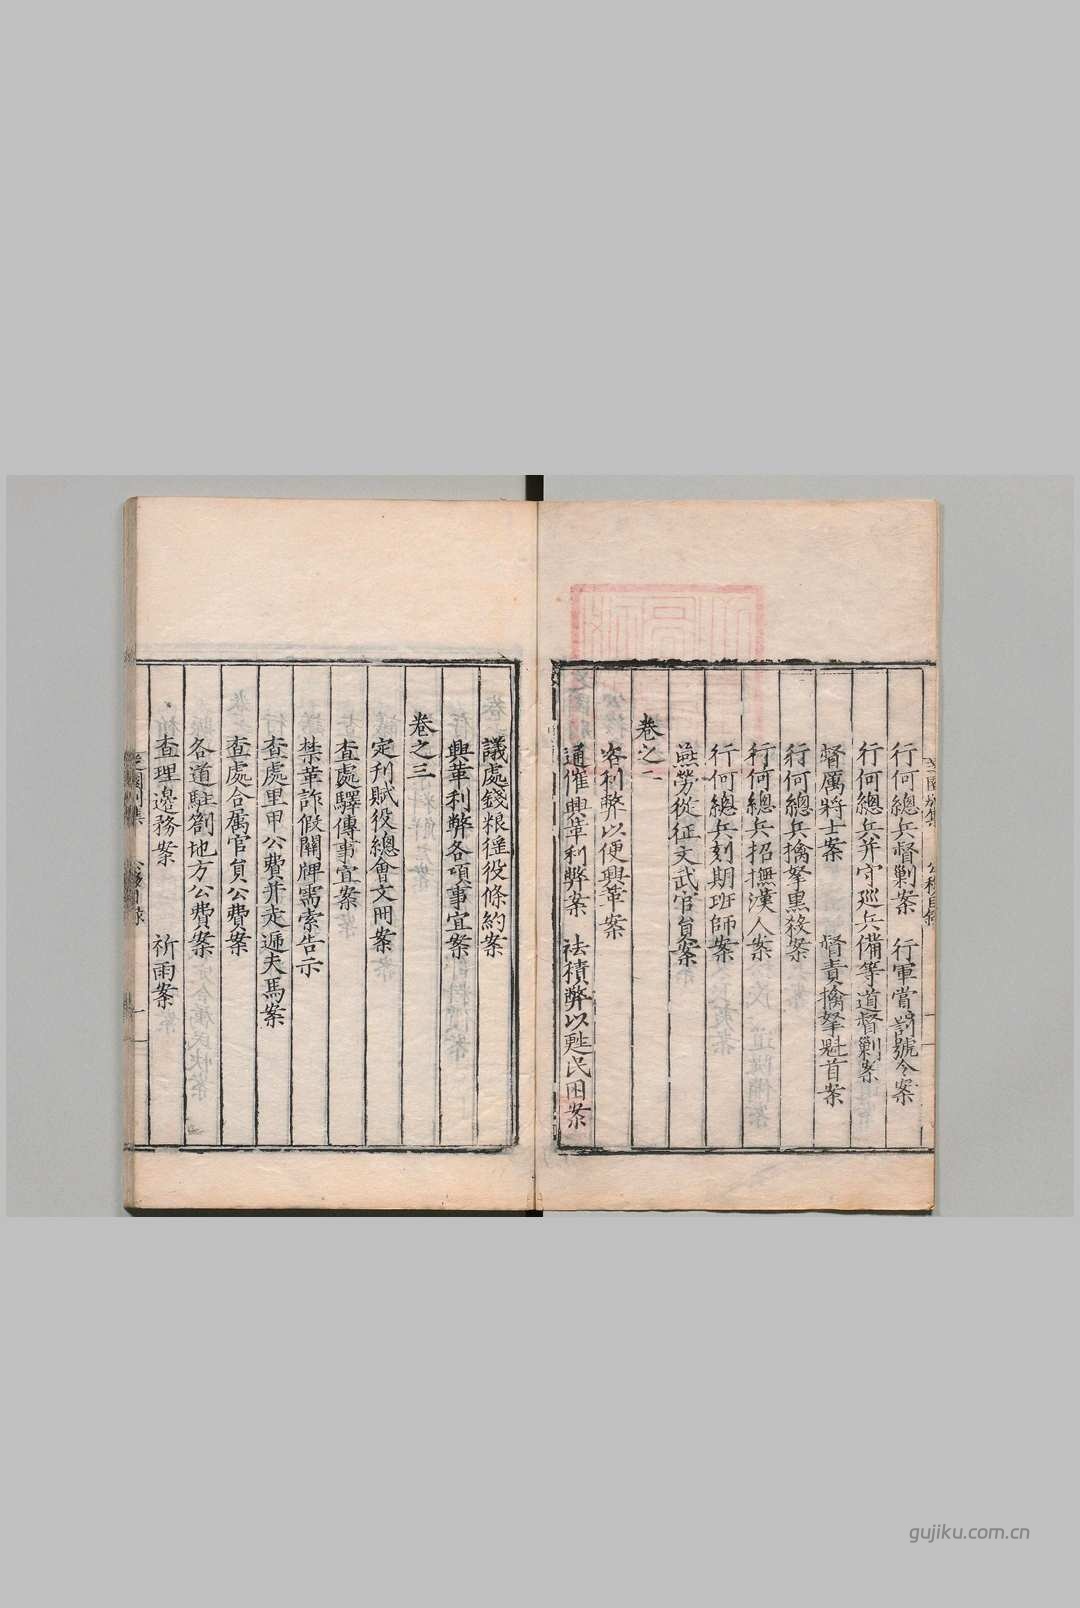 行何總兵督剿案　行軍賞罰號令案
行何總兵并守巡兵備等道督剿案
督厲將士案　督責擒拏魁首案
行何總兵擒拏黒殺案
行何總兵招撫漢人案
行何總兵刻期班師案
燕勞從征文武官員案
卷之二
咨利弊以便興革案
通催興革利弊案　祛積弊以甦民困案
議處錢粮徭役條約案
興革利弊各項事宜案
卷之三
定刋賦役總會文冊案
查處驛傳事宜案
禁革詐假關牌需索告示
查處里甲公費并走遞夫馬案
查處合属官員公費案
各道駐劄地方公費案
查理邊務案　祈雨案
gujiku.com.cn